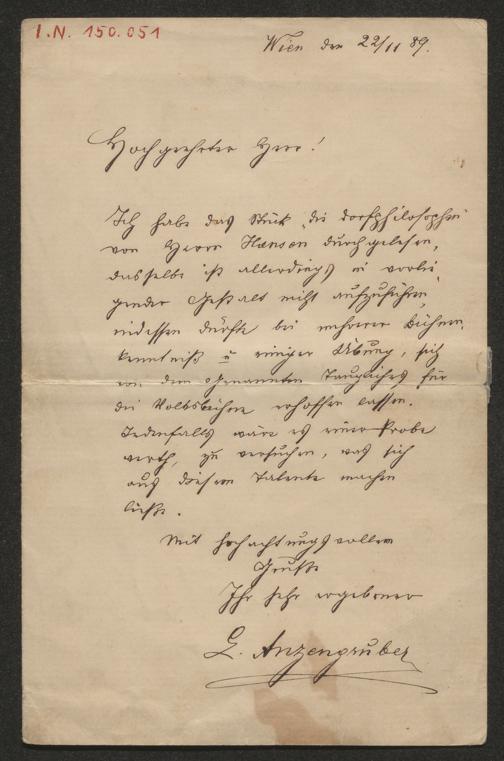 I.N. 150.051
Wien den 22/11 89.
Hochgeehrter Herr!
Ich habe das Stück „die Dorfphilosophin
von Herrn Hanson durchgelesen,
dasselbe ist allerdings in vorlie-
gender Gestalt nicht aufzuführen,
indessen dürfte bei mehrerer Bühnen-
kenntniß u einiger Übung, sich
von dem Genannten Taugliches für
die Volksbühne erhoffen lassen.
Jedenfalls wäre es einer Probe
werth, zu versuchen, was sich
aus diesem Talente machen
ließe.
Mit hochachtungsvollem
Gruße
Ihr sehr ergebener
L. Anzengruber